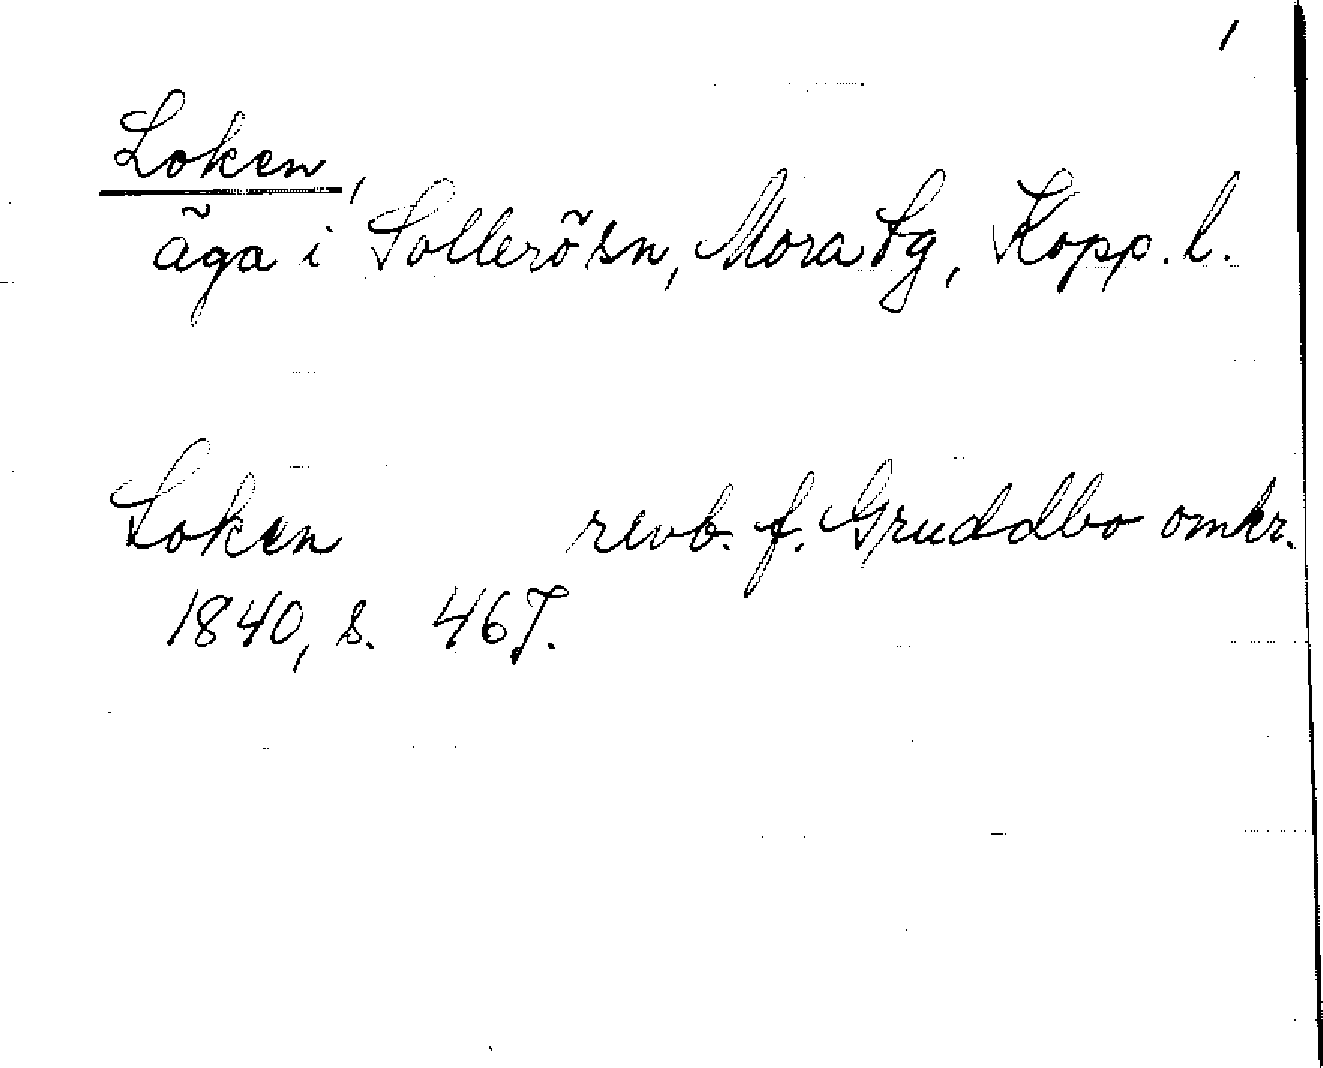 1
Loken,
äga i Sollerö sn, Mora tg, Kopp. l.
Loken revb. f. Gruddbo omkr.
1840, s. 467.